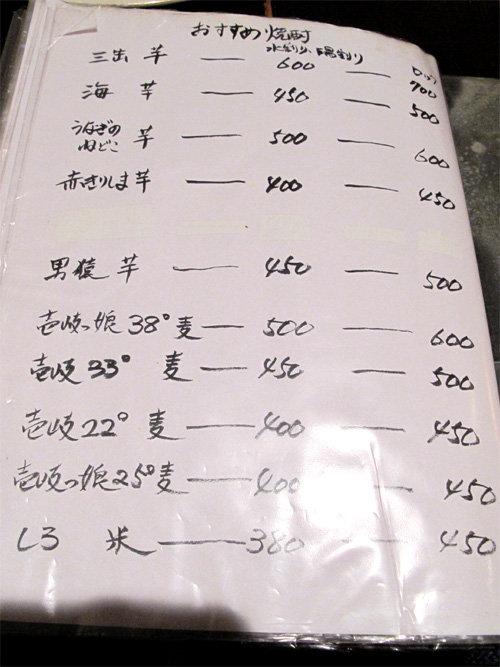 おすすめ焼酎
水割り、湯割り ロック
三岳 芋 — 600 — 700
海 芋 — 450 — 500
うなぎの
ねどこ 芋 — 500 — 600
赤きりしま芋 — 400 — 450
男猿 芋 — 450 — 500
壱岐っ娘 38° 麦 — 500 — 600
壱岐 33° 麦 — 450 — 500
壱岐 22° 麦 — 400 — 450
壱岐っ娘 25° 麦 — 400 — 450
しろ 米 — 380 — 450